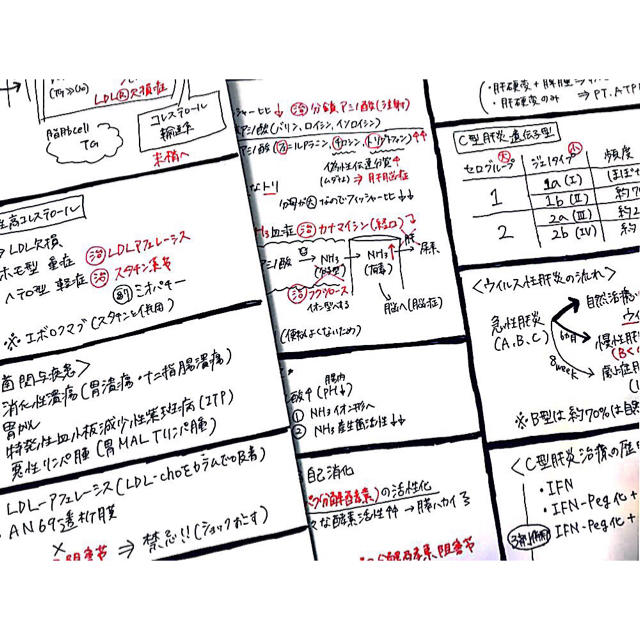 LDL欠損症
脂肪cell
TG
コレステロール
輸送系
末梢へ
性高コレステロール
LDL欠損
ホモ型 重症 治 LDLアフェレーシス
ヘテロ型 軽症 治 スタチン系等
副 ミオパチー
※ エボロクマブ(スタチンと併用)
菌関与疾患>
消化性潰瘍(胃潰瘍・十二指腸潰瘍)
胃がん
特発性血小板減少性紫斑病(ITP)
悪性リンパ腫(胃MALTリンパ腫)
LDL-アフェレーシス(LDL-choをカラムでの吸着)
・AN69透析膜
⇒ 禁忌!!(ショックおこす)
阻害薬
シャー比↓ 治 分岐鎖アミノ酸(注射)
アミノ酸(バリン、ロイシン、イソロイシン)
偽神経伝達物質↑
⇒ 肝性脳症
なトリ
分母が大なのでフィッシャー比↓↓
H3血症 治 カナマイシン(経口)
アミノ酸 → NH3 → NH3↑ 肝 → 尿素
治 ラクツロース
イオン型にする
脳へ(脳症)
腸内
酸↑(PH↓)
① NH3イオン形へ
② NH3産生菌活性↓↓
自己消化
分解酵素)の活性化
々な酵素活性↑↑ → 膵ハカイ
分解酵素阻害薬
・肝硬変のみ ⇒ PT、ATP
C型肝炎遺伝子型
セログループ 大 ジェノタイプ 小 頻度
1 1a(I) ほぼ
1b(II) 約7
2 2a(III) 約2
2b(IV) 約
<ウイルス性肝炎の流れ>
急性肝炎
(A、B、C)
自然治癒
慢性肝
8week
※B型は約70%は自
<C型肝炎治療の歴
・IFN
・IFN-Peg化+
3剤併用 IFN-Peg化+